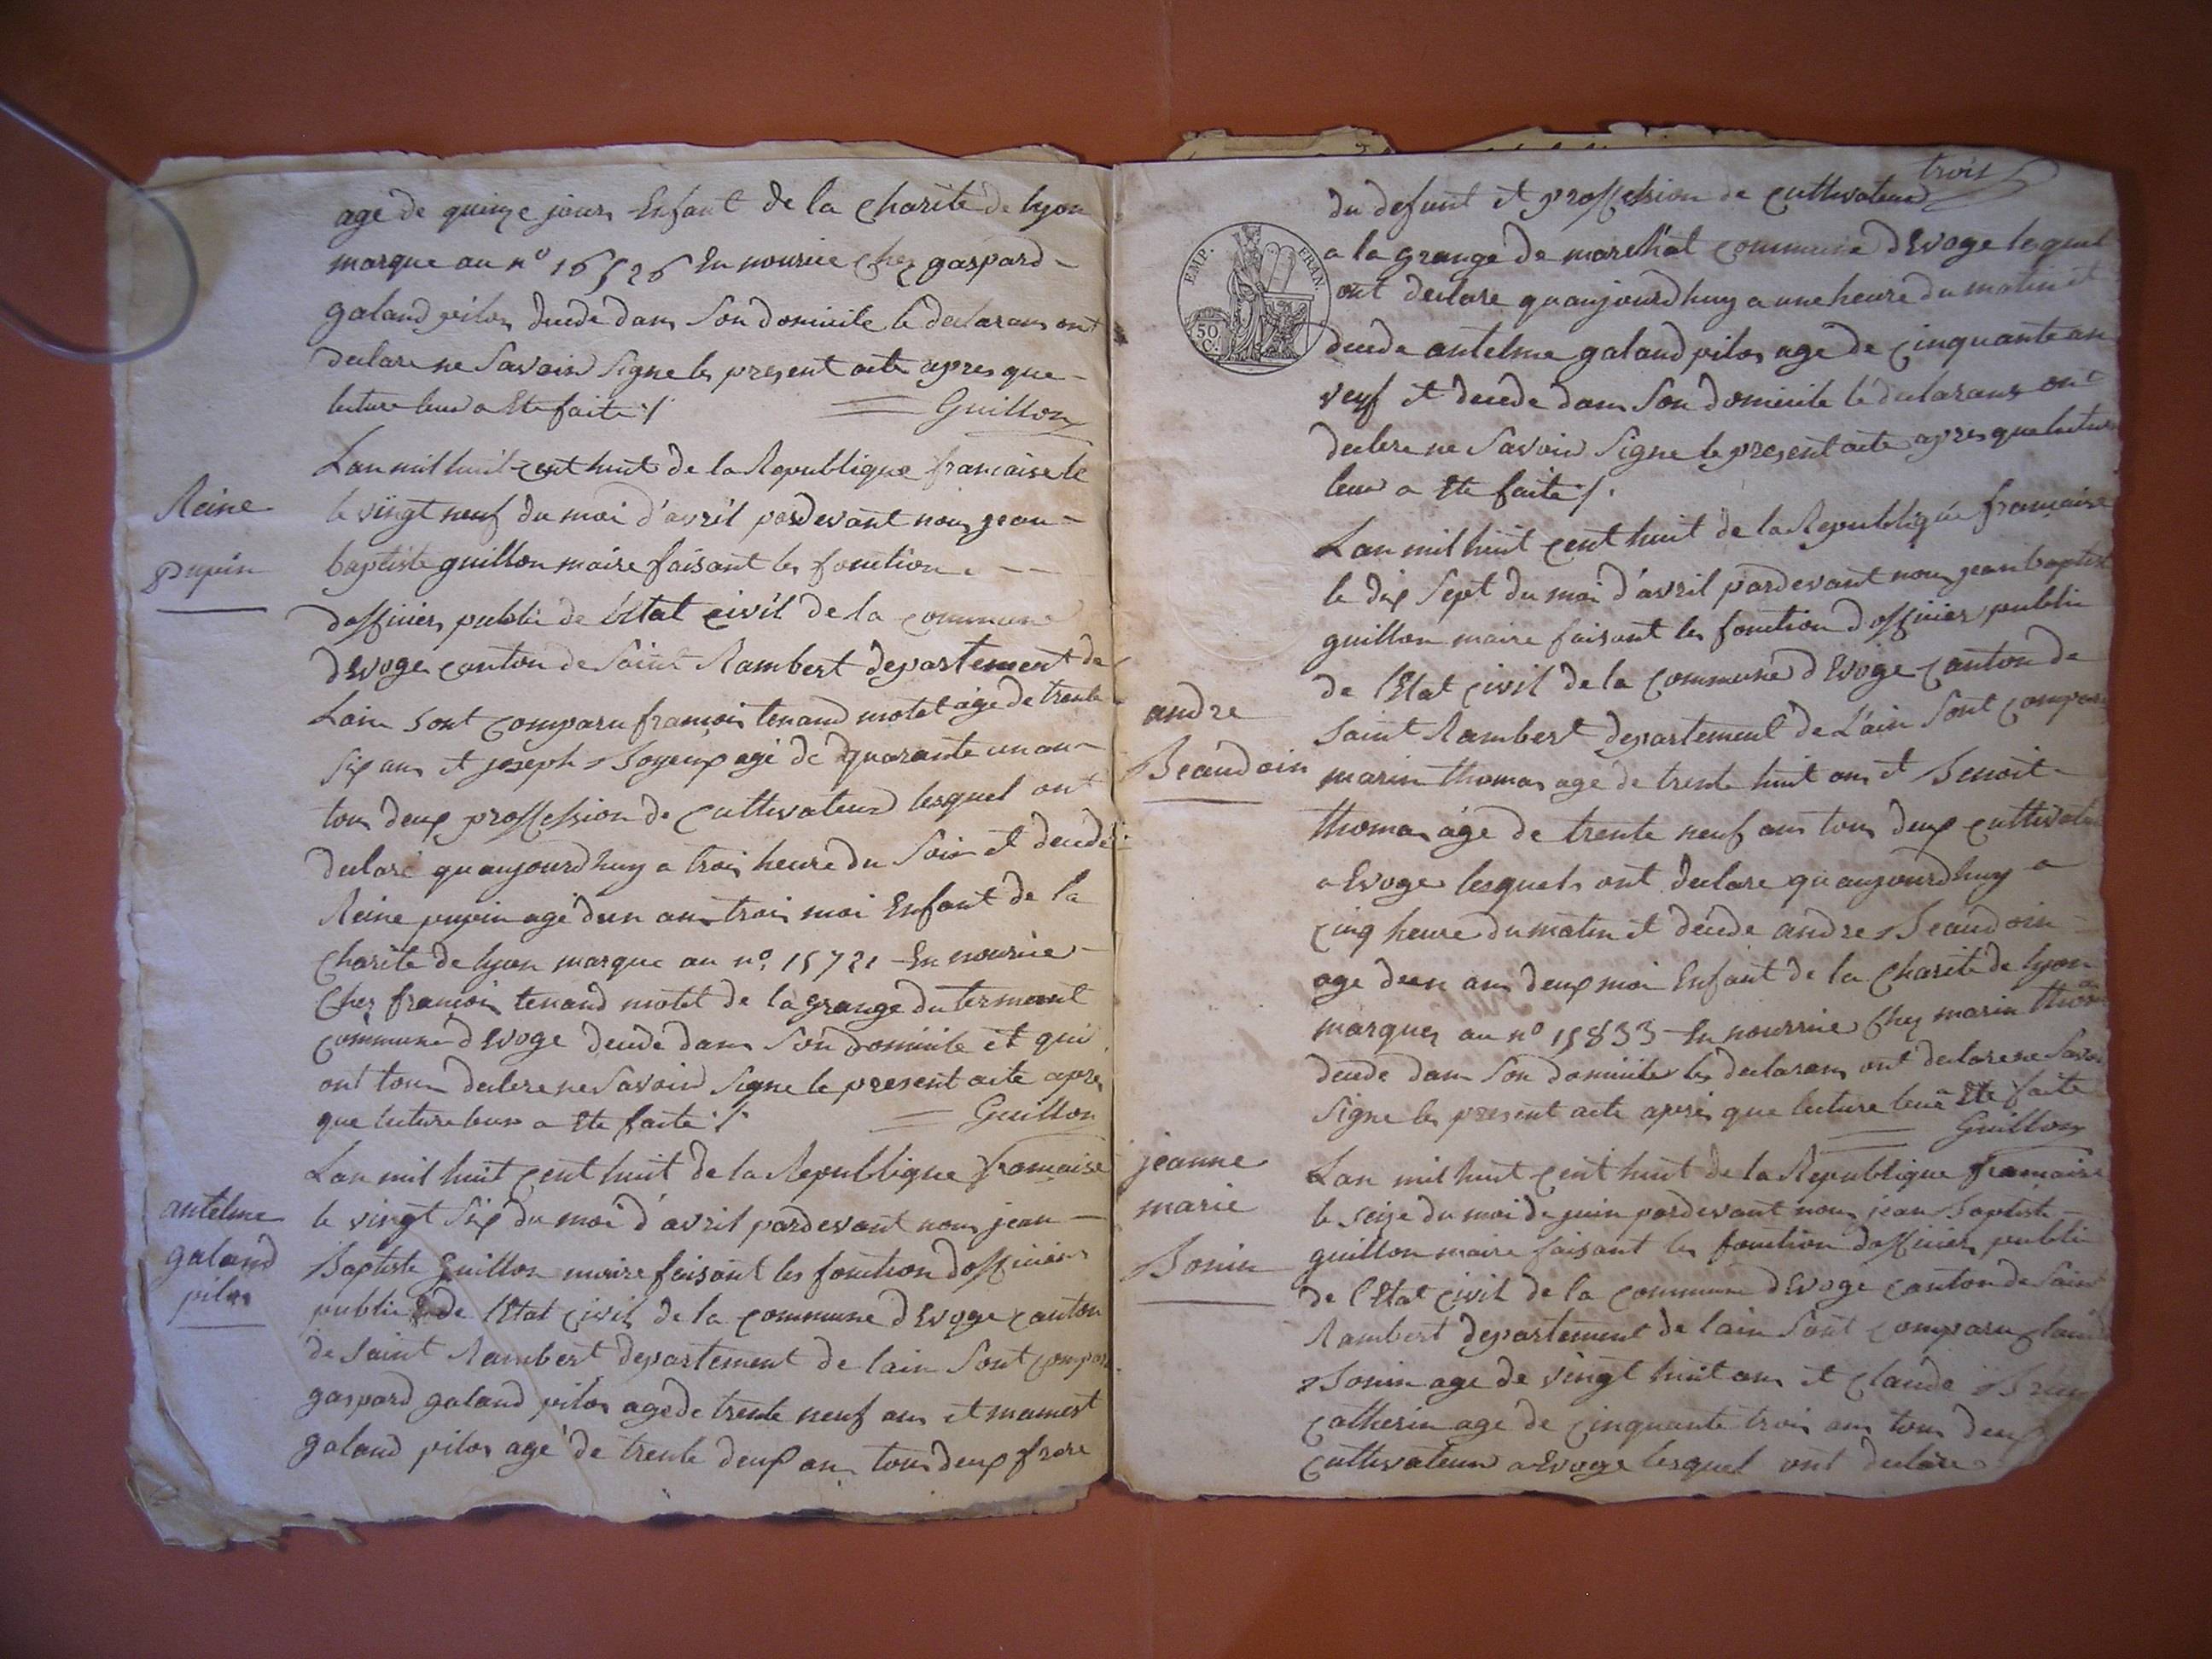 age de quinze jours Enfant de la Charité de lyon
marque au nº 16526 En nourice chez gaspard
galand pilon decede dans Son domicile le declarans ont
declare ne Savoir Signe les present acte apres que
lecture leur a Ete faite ./.
Guillon
Reine
pupin
Lan mil huit cent huit de la Republique francaise le
le vingt neuf du moi d'avril pardevant nous jean
baptiste guillon maire faisant les fonction
dofficier public de lEtat civil de la commune
dEvoge canton de Saint Rambert departement de
Lain Sont comparu francois tenand motet age de trente
Six ans et joseph Boyeux age de quarante un an
tous deux proffession de Cultivateur lesquel ont
declaré quaujourdhuy a trois heure du Soir et decede
Reine pupin agé dun ans trois moi Enfant de la
Charite de lyon marque au nº 15721 En nourice
Chez francois tenand motet de la grange du terment
commune dEvoge decede dans Son domicile et qui
ont tous declere ne Savoir Signe le present acte apres
que lecture leur a Ete faite ./.
Guillon
antelme
galand
pilon
Lan mil huit cent huit de la Republique francaise
le vingt Six du moi d'avril pardevant nous jean
Baptiste Guillon maire faisant les fonction dofficier
public de lEtat civil de la commune dEvoge canton
de Saint Rambert departement de lain Sont compar
gaspard galand pilon age de trente neuf ans et mamert
galand pilon agé de trente deux ans tous deux frere
trois
du defunt et proffession de cultivateur
EMP. FRAN.
50 C.
a la grange de marechat commune dEvoge lesquel
ont declare quaujourdhuy a une heure du matin et
decede antelme galand pilon age de cinquante an
veuf et decede dans Son domicile le declarans ont
declere ne Savoir Signe le present acte apres que lecture
leur a Ete faite ./.
andre
Beaudoin
Lan mil huit cent huit de la Republique francaise
le dix Sept du moi d'avril pardevant nous jean baptist
guillon maire faisant les fonction dofficier public
de lEtat civil de la commune dEvoge canton de
Saint Rambert departement de L'ain Sont compar
marin thomas age de trente huit ans et Benoit
thomas agé de trente neuf ans tous deux cultivat
a Evoge lesquels ont declare qu'aujourdhuy a
cinq heure du matin et decede andre Beaudoin
age deun ans deux moi Enfant de la Charité de lyon
marquer au nº 15833 En nourrice Chez marin thomas
decede dans Son domicile les declarans ont declare ne Savoi
Signe les present acte apres que lecture leur a Ete faite
Guillon
jeanne
marie
Bonin
Lan mil huit cent huit de la Republique francaise
le Seize du moi de juin pardevant nous jean Baptiste
guillon maire faisant les fonction dofficier public
de lEtat civil de la commune dEvoge canton de Saint
Rambert departement de lain Sont comparu
Bonin age de vingt huit ans et Claude
Catherin age de cinquante trois ans tous deux
Cultivateur a Evoge lesquel ont declare